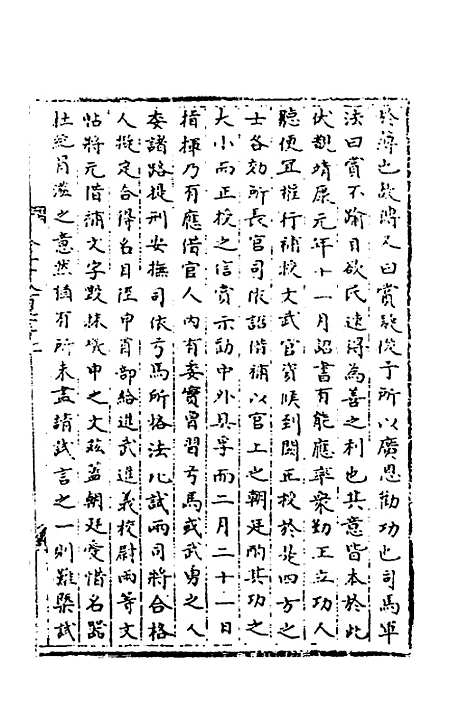 於薄也故將又曰賞疑從予所以廣恩勸功也司馬
法曰賞不踰日欲民速得為善之利也其意皆本於此
伏覩靖康元年十一月詔書有能應率衆勤王立功人
聽便宜權行補授文武官資候到闕正授於是四方之
士各効所長官司依詔借補以官上之朝廷酌其功之
大小而正授之信賞示勸中外具孚而二月二十一日
指揮乃有應借官人內有委實曾習弓馬或武勇之人
委諸路提刑安撫司依弓馬所格法比試兩司將合格
人擬定合得名目徑申省部給進武進義校尉兩等文
帖將元借補文字毀抹繳申之文茲蓋朝廷愛惜名器
杜絕冒濫之意然猶有所未盡請試言之一則難槩試